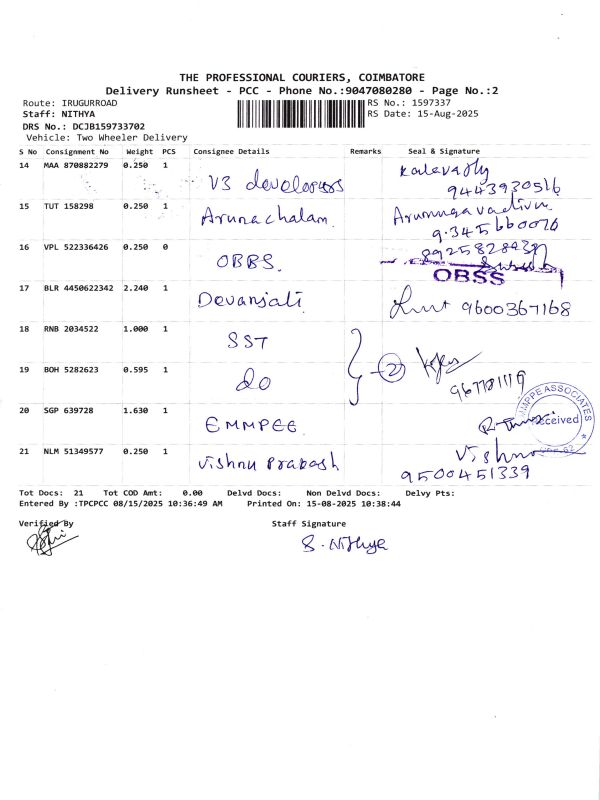 THE PROFESSIONAL COURIERS, COIMBATORE
Delivery Runsheet - PCC - Phone No.:9047080280 - Page No.:2
Route: IRUGURROAD RS No.: 1597337
Staff: NITHYA RS Date: 15-Aug-2025
DRS No.: DCJB159733702
Vehicle: Two Wheeler Delivery
S No Consignment No Weight PCS Consignee Details Remarks Seal & Signature
14 MAA 870882279 0.250 1 V3 developers
9443930516
15 TUT 158298 0.250 1 Arunachalam
9.345660076
16 VPL 522336426 0.250 0 OBBS.
OBSS
17 BLR 4450622342 2.240 1 Devanjali 9600367168
18 RNB 2034522 1.000 1 SST
19 BOH 5282623 0.595 1 do 2
20 SGP 639728 1.630 1 EMMPEE
Received
21 NLM 51349577 0.250 1 Vishnu Prabash Vishnu
9500451339
Tot Docs: 21 Tot COD Amt: 0.00 Delvd Docs: Non Delvd Docs: Delvy Pts:
Entered By :TPCPCC 08/15/2025 10:36:49 AM Printed On: 15-08-2025 10:38:44
Verified By Staff Signature
S. Nithya